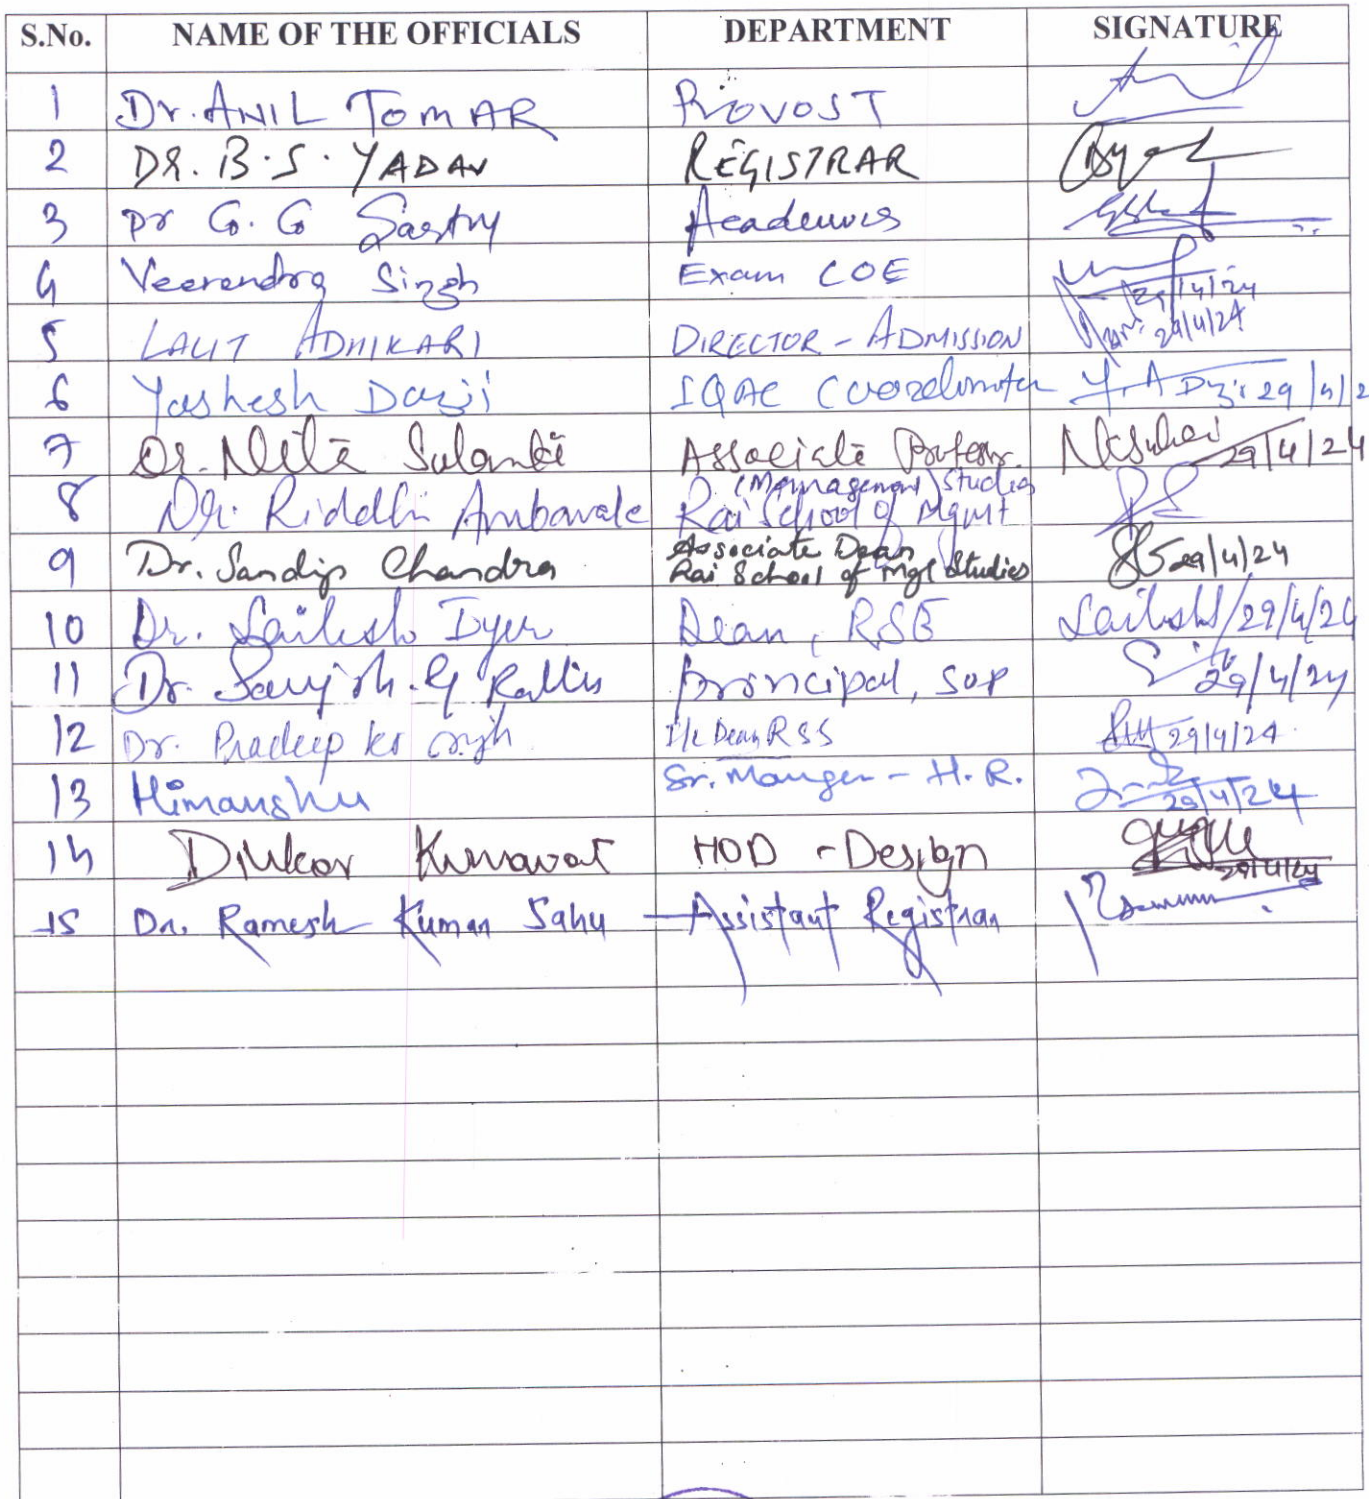 S.No. NAME OF THE OFFICIALS DEPARTMENT SIGNATURE
1 Dr. ANIL TOMAR PROVOST
2 DR. B.S. YADAV REGISTRAR
3 Dr G. G Sastry Academics
4 Veerendra Singh Exam COE 29/4/24
5 LALIT ADHIKARI DIRECTOR - ADMISSION 29/4/24
6 Yashesh Darji IQAC Coordinator Y. A Darji 29/4/2
7 Dr. Nita Solanki Associate Professor 29/4/24
(Management) Studies
8 Dr. Riddhi Ambavale Rai School of Mgmt
Associate Dean
9 Dr. Sandip Chandra Rai School of Mgt Studies 29/4/24
10 Dr. Sailesh Iyer Dean, RSE 29/4/24
11 Dr. G Principal, SOP 29/4/24
12 Dr. Pradeep kr singh I/c Dean RSS 29/4/24
13 Himanshu Sr. Manger - H.R. 29/4/24
14 Dinkar Kunavat HOD - Design 29/4/24
15 Dr. Ramesh Kumar Sahu Assistant Registrar